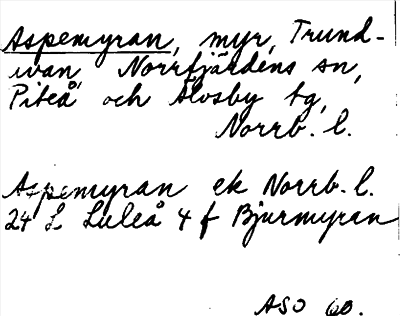 Aspemyran, myr, Trund-
ivan, Norrfjärdens sn,
Piteå och Älvsby tg,
Norrb. l.
Aspemyran ek Norrb. l.
24 L Luleå 4 f Bjurmyran
ASO 60.